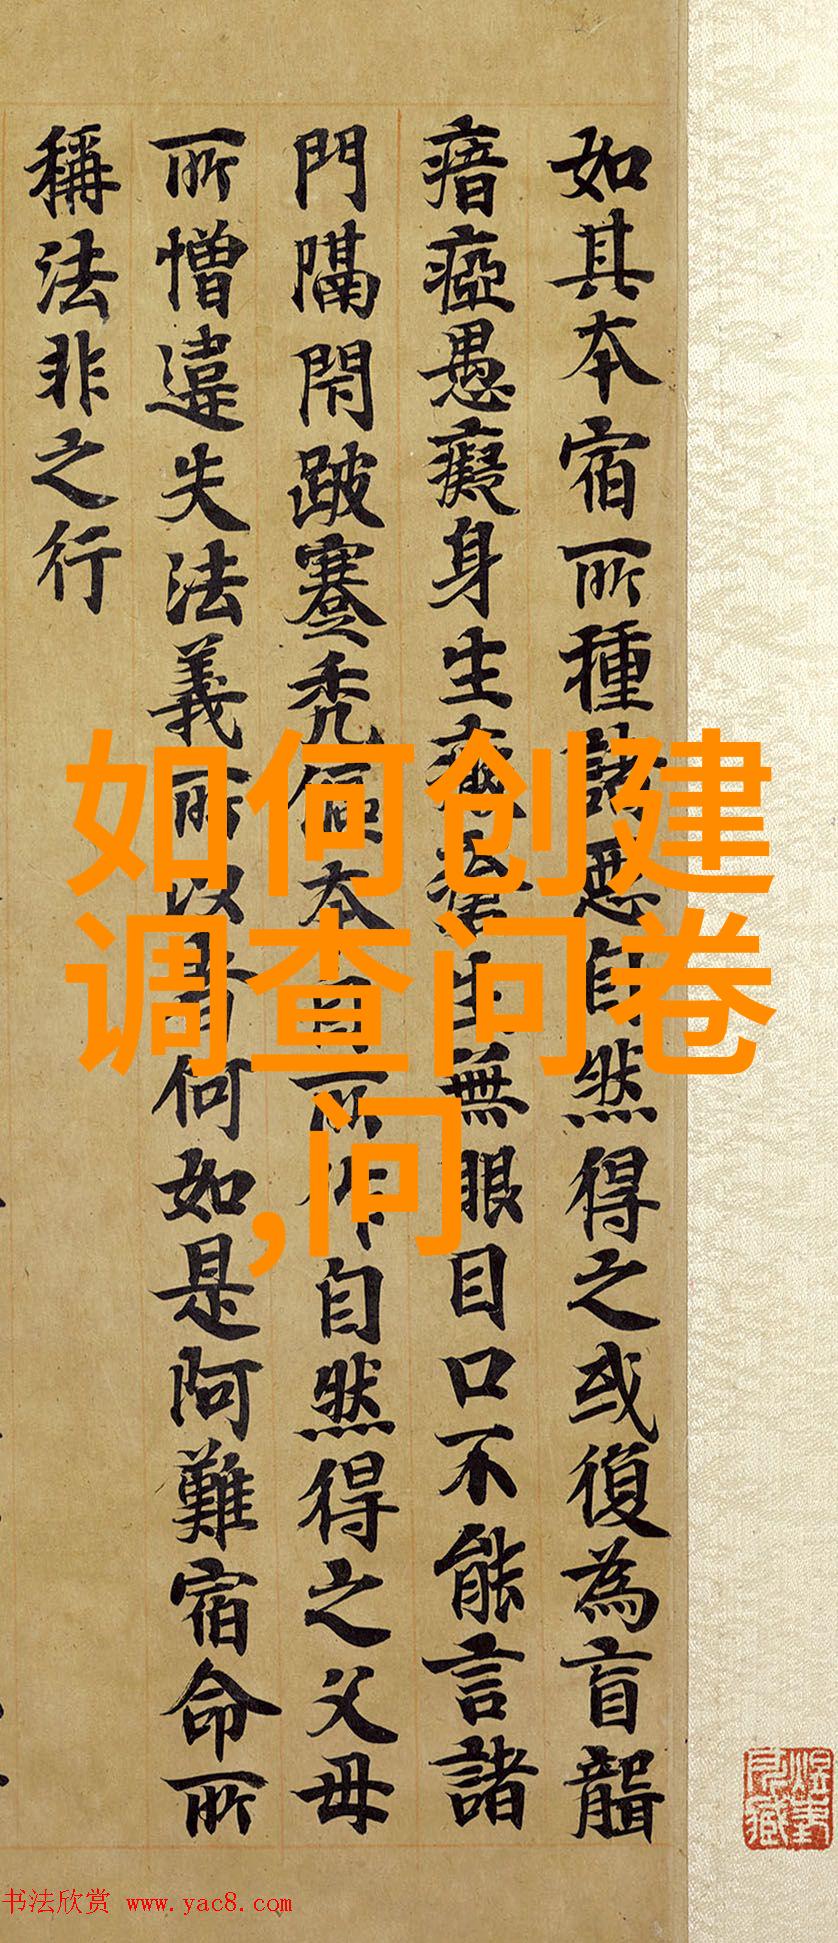 如其本宿所種諸惡自然得之或復為盲聾
瘖瘂愚癡身生生無眼目口不能言諸
門隔閇跛蹇禿僂本自所作自然得之父母
所憎違失法義所以者何如是阿難宿命所
稱法非之行
如何创建
调查问卷
,问
书法欣赏 www.yac8.com